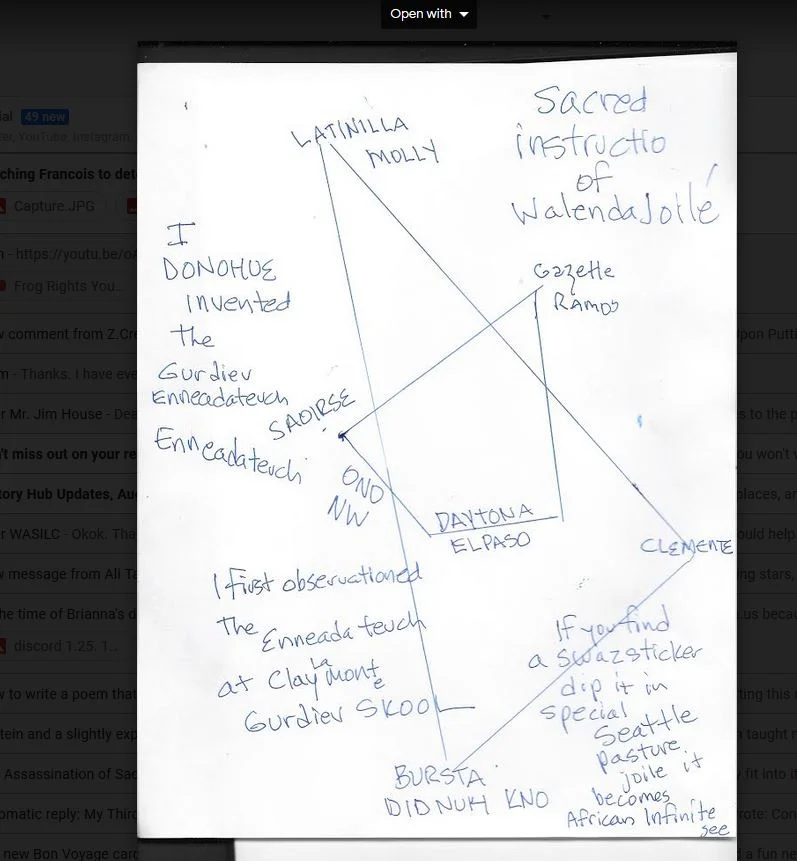 Open with
ial 49 new
er, YouTube, Instagram,
ching Francois to det
Capture.JPG
n - https://youtu.be/oA
Frog Rights You...
w comment from Z.Cre
Upon Putti
m - Thanks. I have eve
r Mr. Jim House - Dea
s to the p
n't miss out on your re
ou won't v
tory Hub Updates, Aug
laces, ar
r WASILC - Okok. Tha
ould help
w message from Ali Ta
ng stars,
he time of Brianna's d
us becau
discord 1.25. 1...
w to write a poem that
ting this
tein and a slightly exp
taught n
Assassination of Sad
fit into i
omatic reply: My Third
rote: Con
new Bon Voyage card
a fun ne
Sacred
instructio
of
WalendaJoilé
LATINILLA
MOLLY
I
DONOHUE
invented
the
Gurdiev
Enneadateuch
Enneadateuch
Gazette
RAMOS
SAOIRSE
ONO
NW
DAYTONA
ELPASO
CLEMENTE
I first observationed
The Enneada teuch
at Clay La Monte
Gurdiev SKOOL
BURSTA
DIDNUH KNO
If you find
a swazsticker
dip it in
special
Seattle
pasture,
joile it
becomes
African Infinite
see